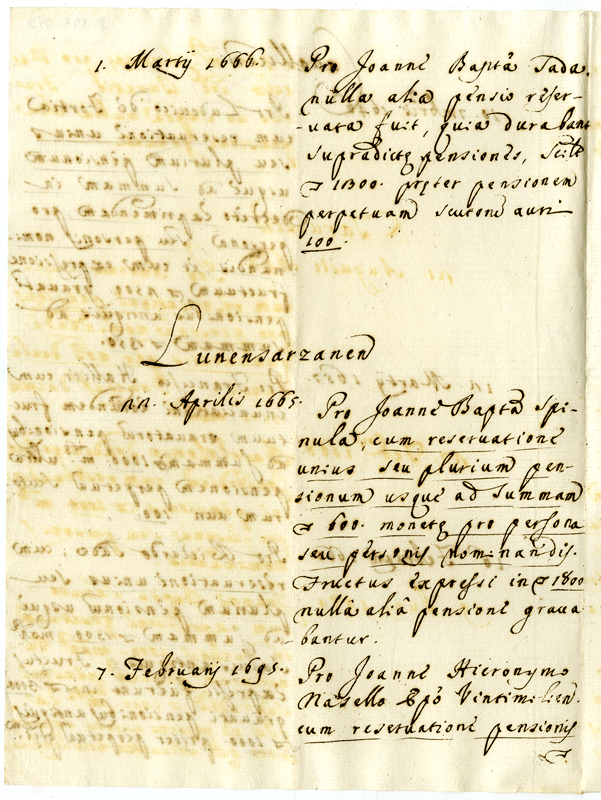 1. Martij 1666. Pro Joanne Baptã Tada.
nulla alia pensio reser-
uata fuit, quia durabant
supradictę pensiones, scilt
∇ 1300. pręter pensionem
perpetuam scutorũ auri
100.
Lunensarzanen
11. Aprilis 1665. Pro Joanne Baptã Spi-
nula, cum reseruatione
unius seu plurium pen-
sionum usque ad summam
∇ 600. monetę pro persona
seu personis nominandis.
Fructus expressi in ∇ 1800
nullâ aliâ pensione graua
bantur.
7. Februarij 1695. Pro Joanne Hieronymo
Nasello Ep̃o Vintimilien.
cum reseruatione pensionis
∇